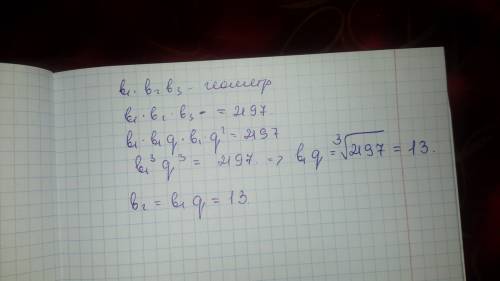 b₁·b₂ b₃ - геометр
b₁·b₂·b₃ = 2197
b₁·b₁q·b₁q² = 2197
b₁³q³ = 2197 => b₁q = ∛2197 = 13.
b₂ = b₁q = 13